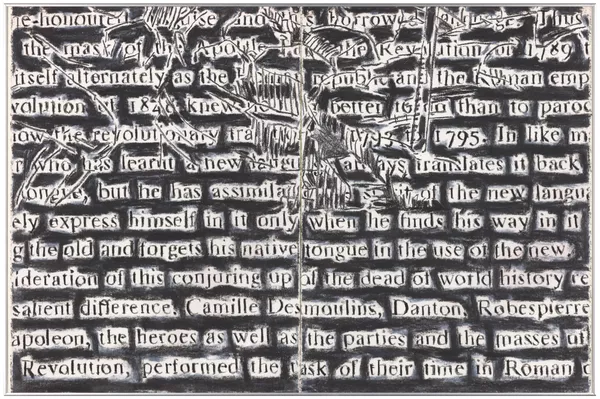 e-honoured and borrow Thus
the mask of the Apostle the Revolution of 1789
itself alternately as the republic and the Roman emp
volution of 1848 knew better to do than to parod
now the revolutionary tra 1793 to 1795. In like m
r who has learnt a new langu always translates it back
tongue, but he has assimilat the spirit of the new langu
ely express himself in it only when he finds his way in it
g the old and forgets his native tongue in the use of the new.
ideration of this conjuring up of the dead of world history re
salient difference. Camille Desmoulins, Danton, Robespierre
apoleon, the heroes as well as the parties and the masses of
Revolution, performed the task of their time in Roman c